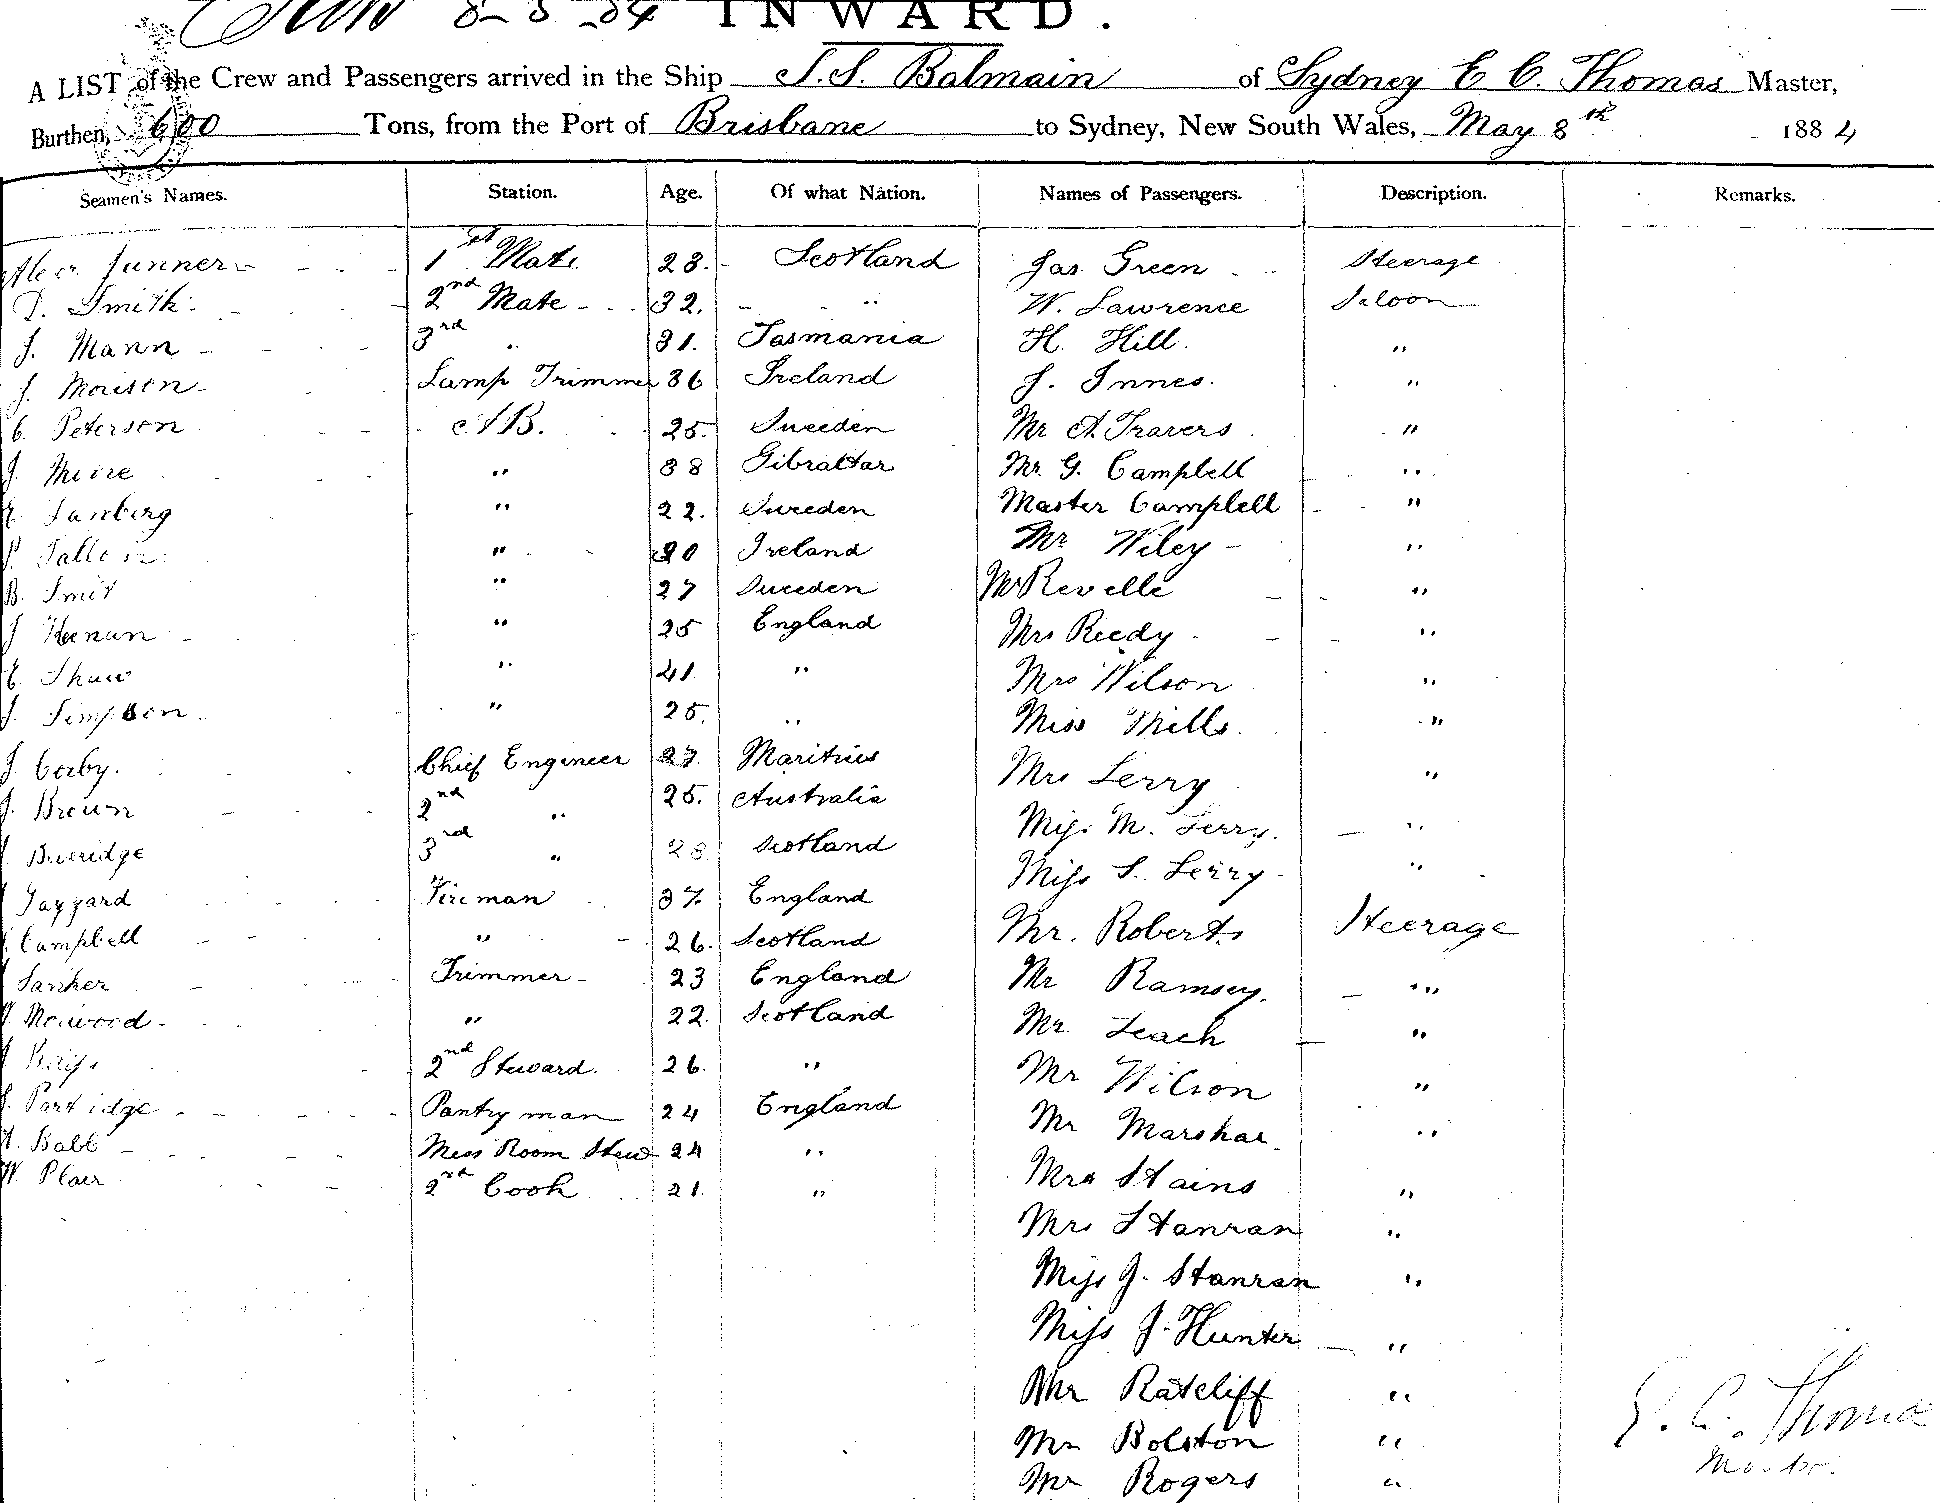 8-5-84 INWARD.
A LIST of the Crew and Passengers arrived in the Ship S.S. Balmain of Sydney E C. Thomas Master,
Burthen, 600 Tons, from the Port of Brisbane to Sydney, New South Wales, May 8th 1884
Seamen's Names. Station. Age. Of what Nation. Names of Passengers. Description. Remarks.
1st Mate 28. Scotland Jas Green Steerage
D. Smith 2nd Mate 32. " W. Lawrence Saloon
J. Mann 3rd " 31. Tasmania H. Hill. "
J. Morison Lamp Trimmer 36 Ireland J. Innes. "
C. Peterson A B. 25. Sweeden Mr A. Travers "
J. " 38 Gibraltar Mr G. Campbell "
" 22. Sweeden Master Campbell "
" Ireland Mr Wiley "
B. Smit " 27 Sweeden Mr Revelle "
J Keenan " 25 England Mrs Reedy "
Shaw " 41 " Mrs Wilson "
J. Simpson " 25. " Miss Mills. "
J. Corby. Chief Engineer 27. Maritius Mrs Lerry "
J. Brown 2nd " 25. Australia Miss M. Lerry. "
3rd " 28 Scotland Miss S. Lerry "
Fireman 37. England Mr. Roberts Steerage
Campbell " 26. Scotland Mr Ramsey. "
Trimmer 23 England Mr Leach "
" 22. Scotland Mr Wilson "
2nd Steward. 26. " Mr "
Partidge Pantry man 24 England Mrs Stains "
Babb Mess Room Stew 24 " Mrs Stanran "
W. 2nd Cook 21. " Miss J. Stanran "
Miss J. Hunter "
Mr Ratcliff "
Mr Bolston "
Mr Rogers "
E. C. Thomas
Master.